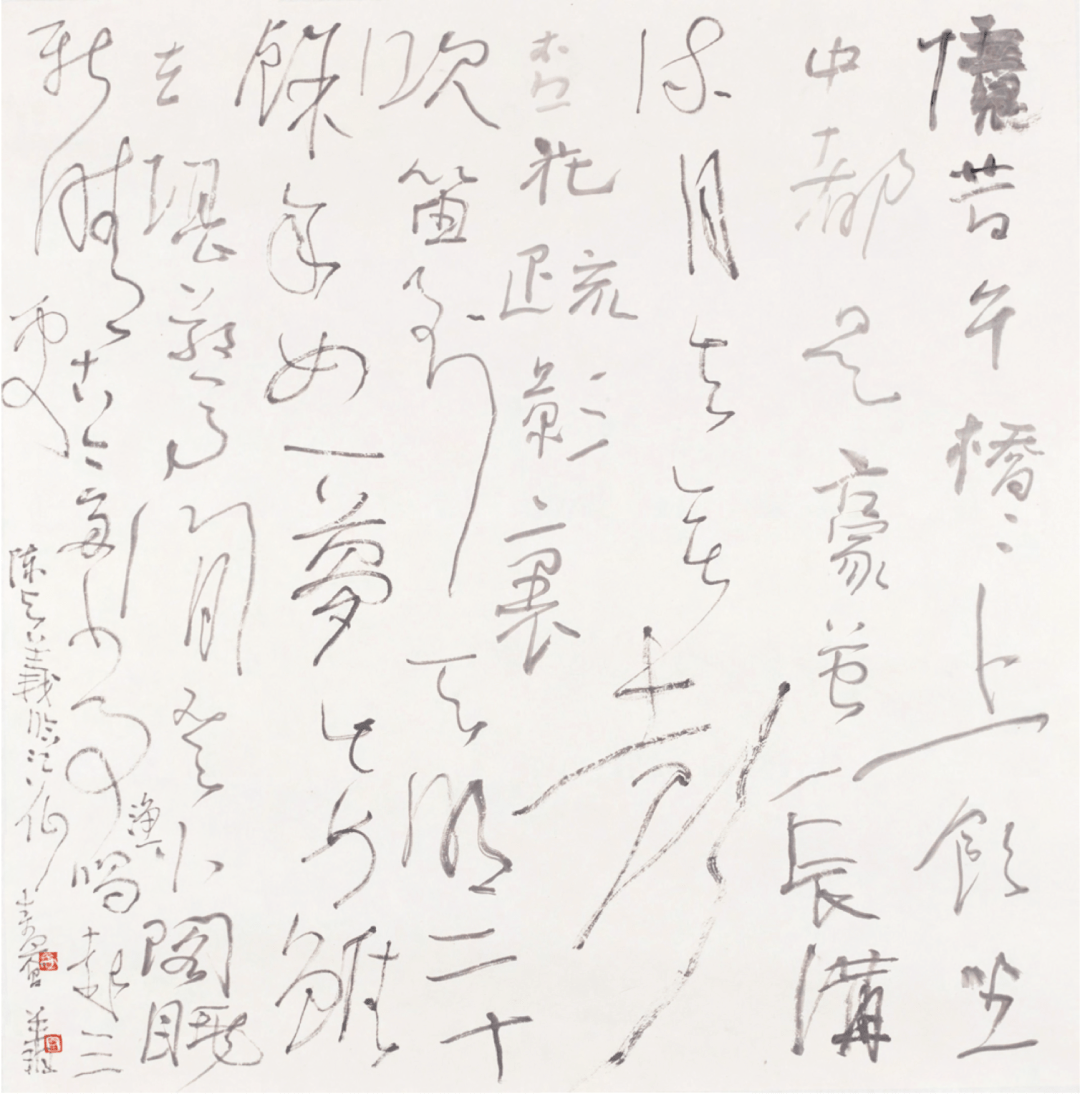 憶昔午橋〻上飲坐
中都是豪英長溝
流月去無聲
杏花疏影裏
吹笛到天明二十
餘年如一夢此身雖
在堪驚閒登小閣眺
新晴古今多少事漁唱起三
更
陈与義临江仙